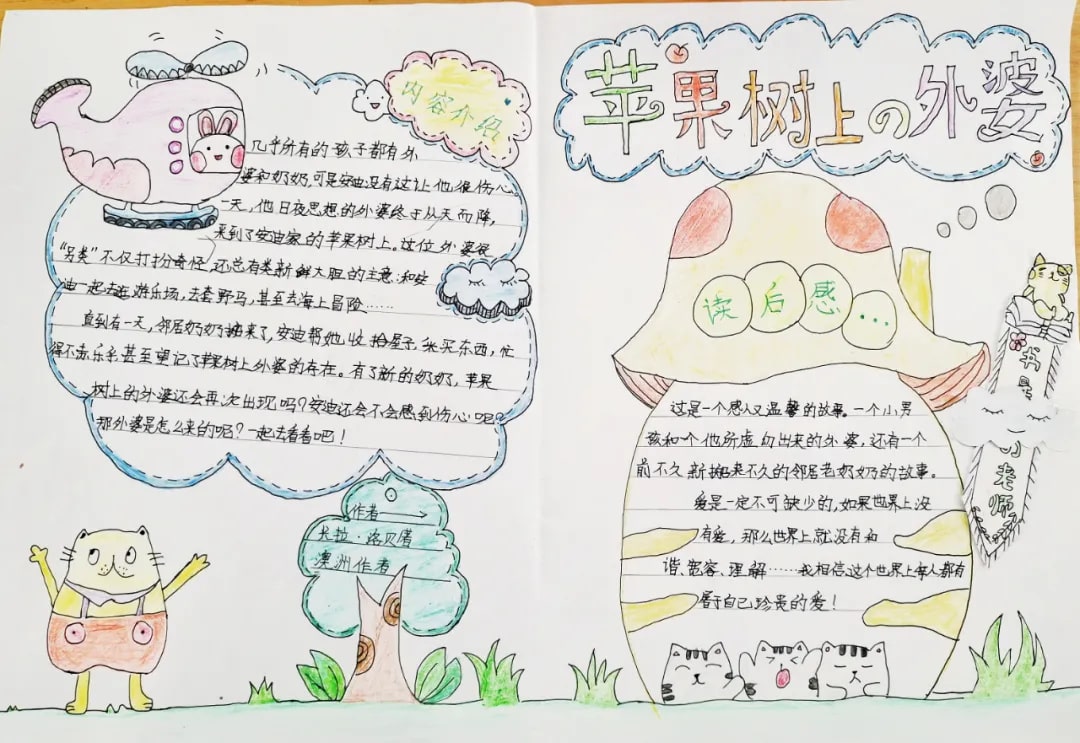 内容介绍
几乎所有的孩子都有外
婆和奶奶,可是安迪没有这让他很伤心
一天,他日夜思想的外婆终于从天而降,
来到了安迪家的苹果树上。这位外婆很
“另类”不仅打扮奇怪,还总有类新鲜大胆的主意:和安
迪一起去逛游乐场,去套野马,甚至去海上冒险……
直到有一天,邻居奶奶搬来了,安迪帮她收拾屋子,买东西,忙
得不亦乐乎甚至望记了苹果树上外婆的存在。有了新的奶奶,苹果
树上的外婆还会再次出现吗?安迪还会不会感到伤心呢?
那外婆是怎么来的呢?一起去看看吧!
作者
卡拉·洛贝
澳洲作者
苹果树上の外婆
读后感...
这是一个感人又温馨的故事。一个小男
孩和个他所虚勾出来的外婆,还有一个
前不久新搬来不久的邻居老奶奶的故事。
爱是一定不可缺少的,如果世界上没
有爱,那么世界上就没有和
谐、宽容、理解……我相信这个世界上每人都有
属于自己珍贵的爱!
书是 的老师